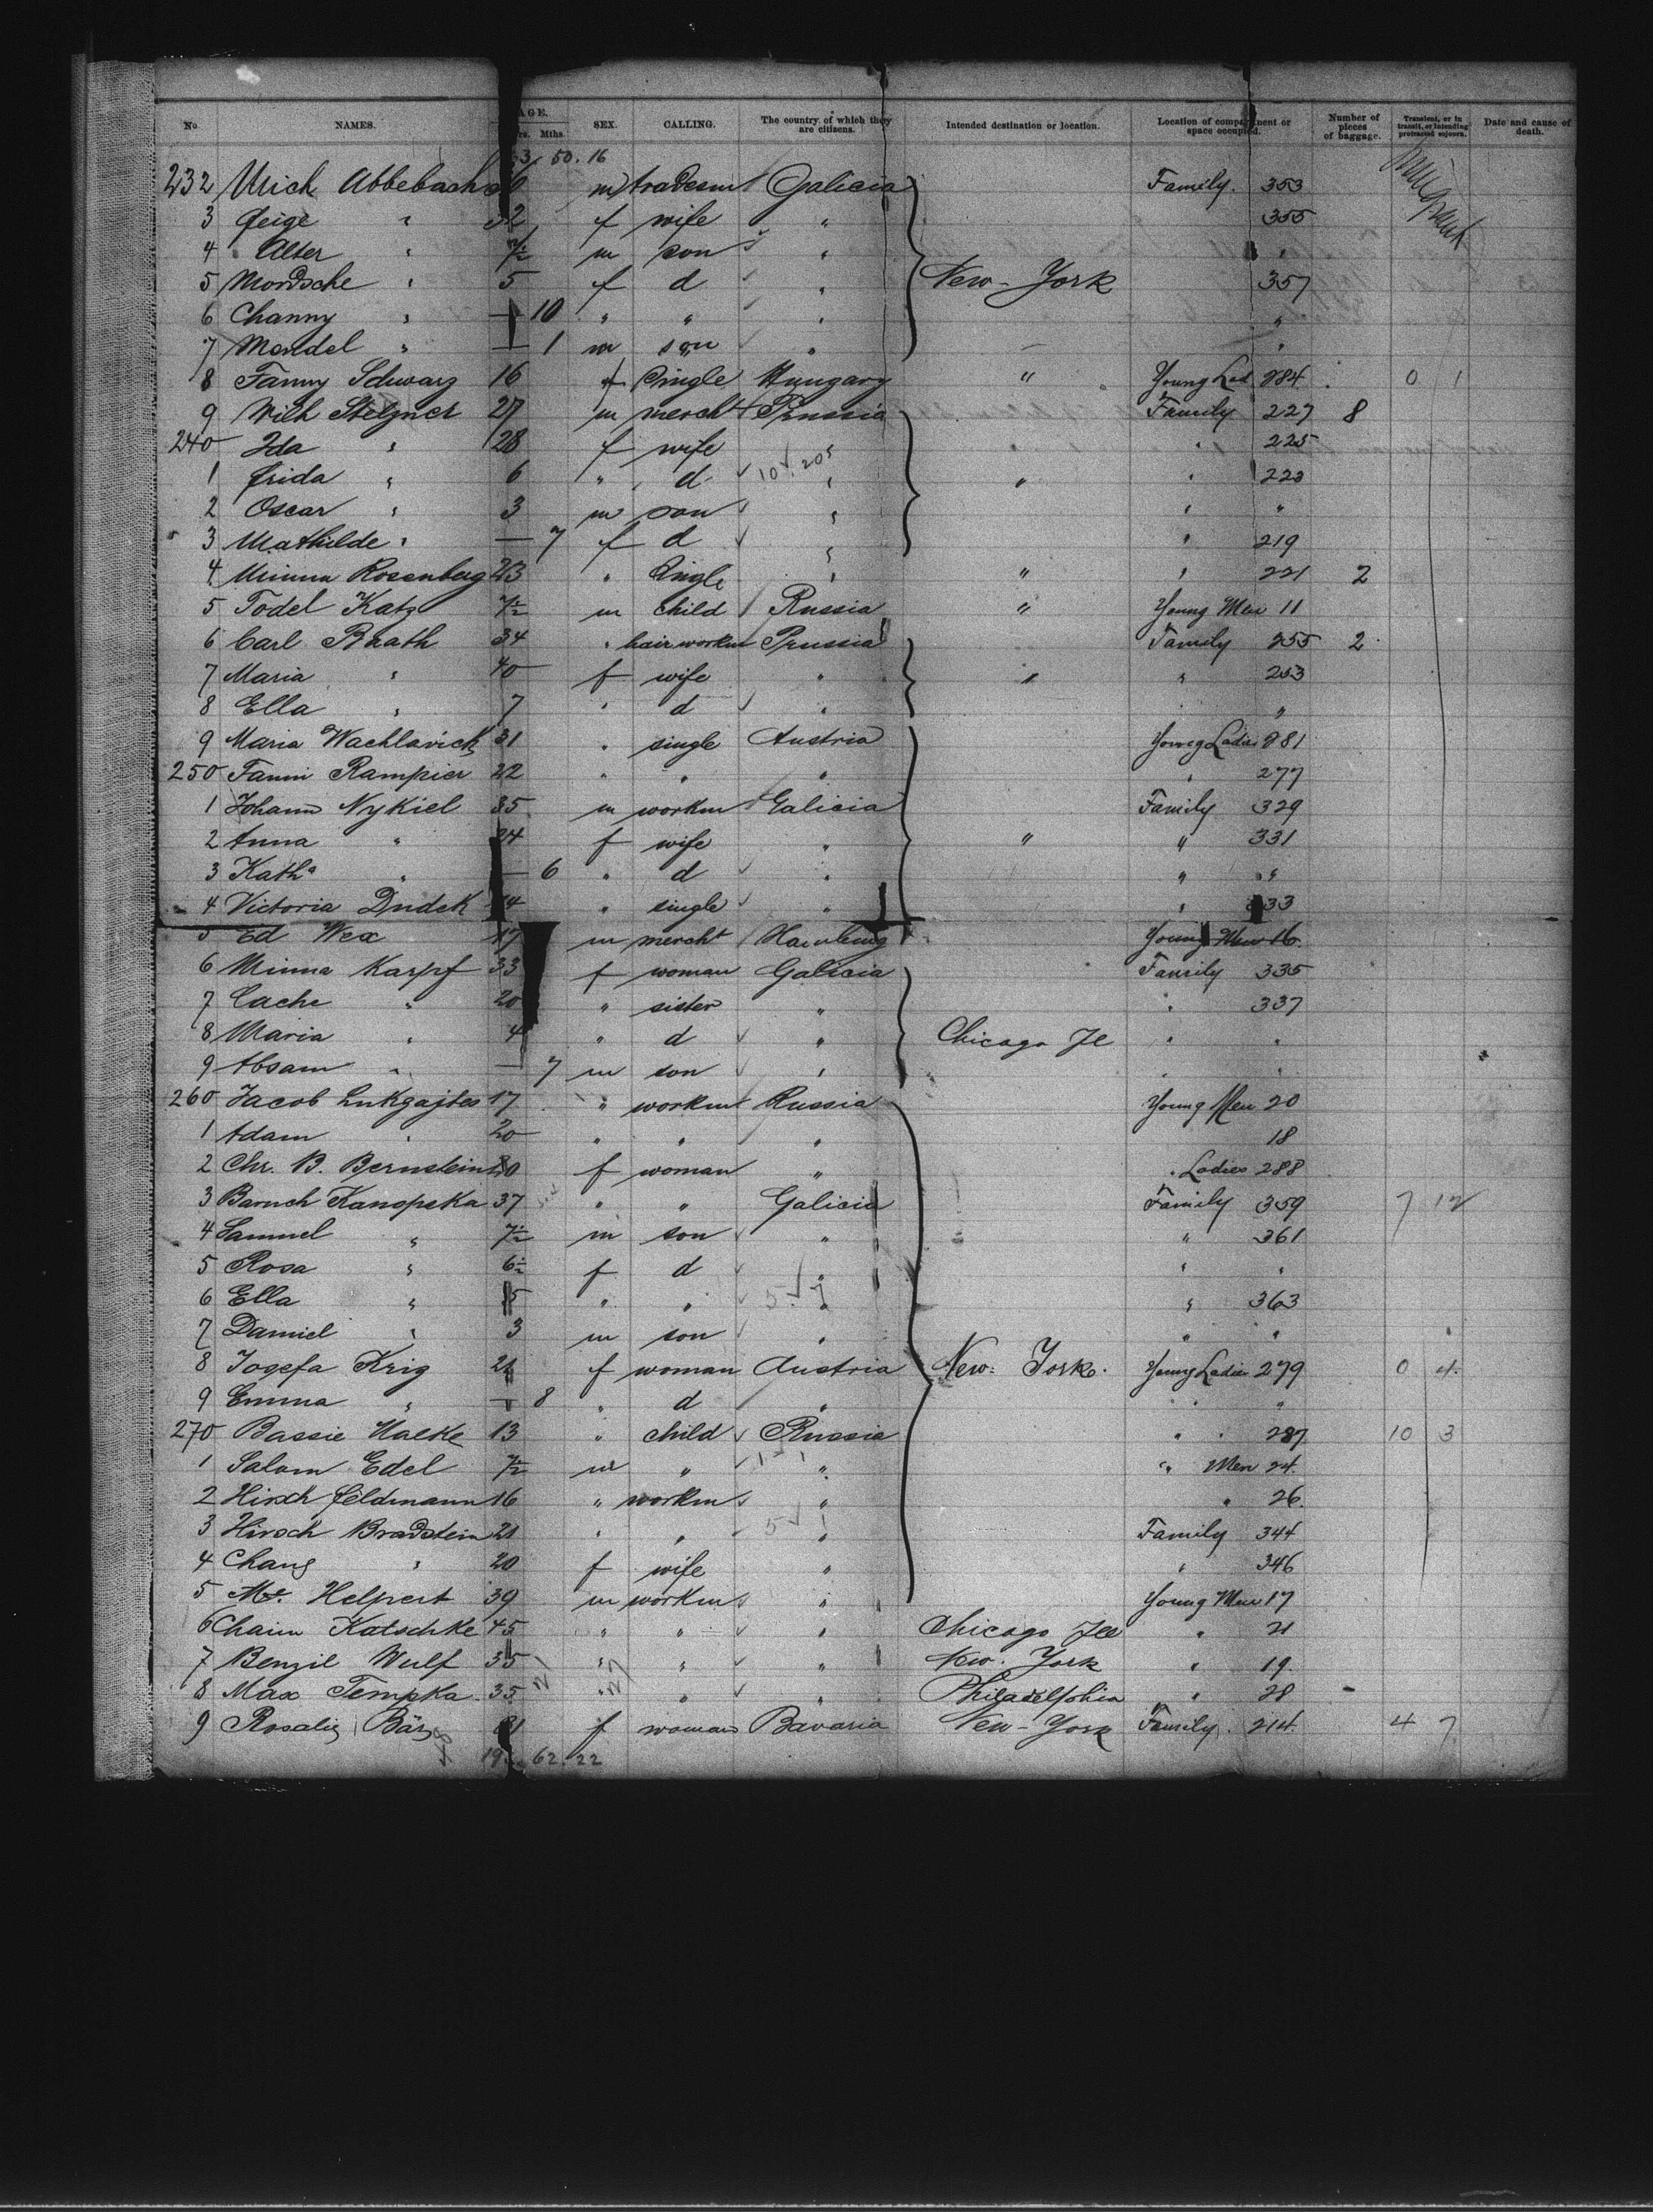 No NAMES. AGE. Yrs. Mths. SEX. CALLING. The country of which they are citizens. Intended destination or location. Location of compartment or space occupied. Number of pieces of baggage. Transient, or in transit, or intending protracted sojourn. Date and cause of death.
50. 16
232 Mich Abbebach m tradesm Galicia Family. 353
3 Feige " 32 f wife " 355
4 Alter " 7½ m son " "
5 Mordsche " 5 f d " New-York 357
6 Channy " — 10 " " " "
7 Mendel " — 1 m son " "
8 Fanny Schwarz 16 f Single Hungary " Young Lad 284 0 1
9 Wilh Stelzner 27 m mercht Prussia Family 227 8
240 Ida " 28 f wife " 225
1 Frida " 6 " d " " " 223
2 Oscar " 3 m son " " "
3 Mathilde " — 7 f d " " 219
4 Minna Rosenberg 23 " Single " " " 221 2
5 Todel Katz 7½ m child Russia " Young Men 11
6 Carl Braath 34 " hair workm Prussia Family 255 2
7 Maria " 40 f wife " " " 253
8 Ella " 7 " d " "
9 Maria Wachlavick 31 " single Austria Young Ladies 281
250 Fanni Rampier 22 " " " " 277
1 Johann Nykiel 35 m workm Galicia Family 329
2 Anna " 24 f wife " " " 331
3 Katha " — 6 " d " " "
4 Victoria Dudek " single " " 333
5 Ed Wex 17 m mercht Hamburg Young Men 16
6 Minna Karpf 33 f woman Galicia Family 335
7 Cache " 20 " sister " " 337
8 Maria " 4 " d " Chicago Il " "
9 Absam " — 7 m son " " "
260 Jacob Lukgajtes 17 " workm Russia Young Men 20
1 Adam " 20 " " " 18
2 Chr. B. Bernstein f woman " " Ladies 288
3 Baruch Kanopska 37 " " Galicia Family 359 7 12
4 Samuel " 7½ m son " " 361
5 Rosa " 6½ f d " " "
6 Ella " 5 " " " " 363
7 Daniel " 3 m son " " "
8 Josefa Krig 21 f woman Austria New-York. Young Ladies 279 0 4
9 Emma " — 8 " d " " "
270 Bassie Halke 13 " child Russia " " 287 10 3
1 Salom Edel 7½ m " " " Men 24
2 Hirsch Feldmann 16 " workm " " 26
3 Hirsch Bradstein 21 " " " Family 344
4 Chang " 20 f wife " " 346
5 Helpert 39 m workm " Young Men 17
6 Chaim Katschke 45 " " " Chicago Ill " 21
7 Benzil Wulf 35 " " " New-York " 19
8 Max Tempka 35 " " " Philadelphia " 28
9 Rosalie Bär f woman Bavaria New-York Family 214 4 7
62. 22